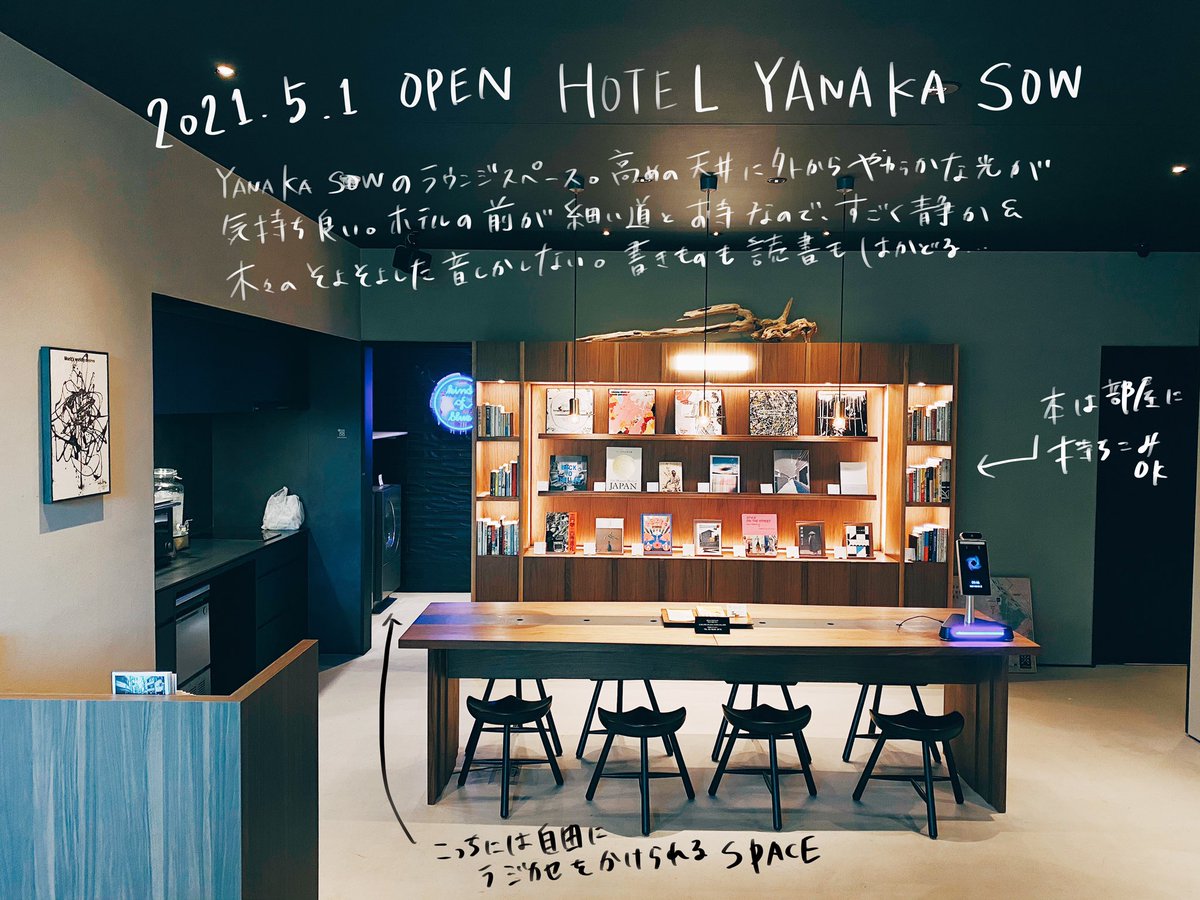 2021.5.1 OPEN HOTEL YANAKA SOW
YANAKA SOWのラウンジスペース。高めの天井に外からやわらかな光が
気持ち良い。ホテルの前が細い道とお寺なので、すごく静か&
木々のそよそよした音しかしない。書きものも読書もはかどる...
kind
of
blue
本は部屋に
持ちこみ
OK
BACK
TO
JAPAN
こっちには自由に
ラジカセをかけられるSPACE